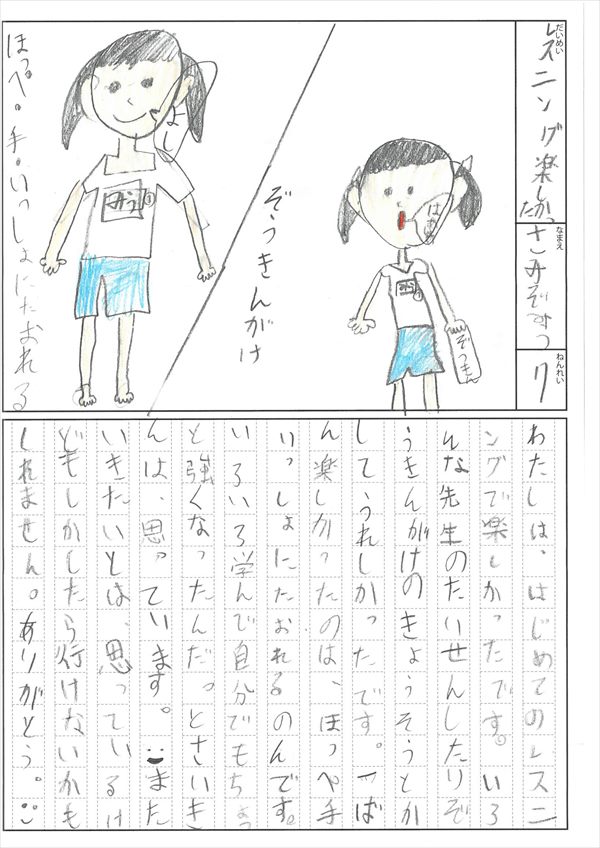 だいめい
レスニング楽しかった
なまえ
ねんれい
ぞうきん
ぞうきんがけ
よし
みう
ほっぺ。手。いっしょにたおれる
わたしは、はじめてのレスニ
ングで楽しかったです。いろ
んな先生のたいせんしたりぞ
うきんがけのきょうそうとか
してうれしかったです。一ば
ん楽しかったのは、ほっぺ手
いっしょにたおれるのんです。
いろいろ学んで自分でもちょっ
と強くなったんだっとさいき
んは、思っています。また
いきたいとは、思っているけ
どもしかしたら行けないかも
しれません。ありがとう。